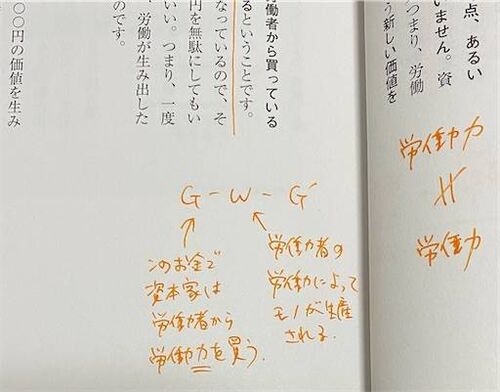 点、あるい
いません。資
つまり、労働
う新しい価値を
労働力
≠
労働
働者から買っている
るということです。
なっているので、そ
円を無駄にしてもい
いい。つまり、一度
、労働が生み出した
のです。
〇〇円の価値を生み
G - W - G'
このお金で
資本家は
労働者から
労働力を買う.
労働者の
労働によって
モノが生産
される.